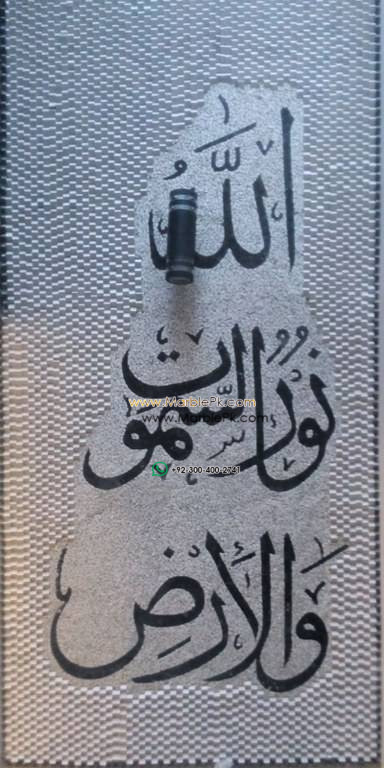 اللَّهُ
نُورُ السَّمَوَاتِ
وَالْأَرْضِ
www.MarblePk.com
www.MarblePk.com
+92 300-400-2741